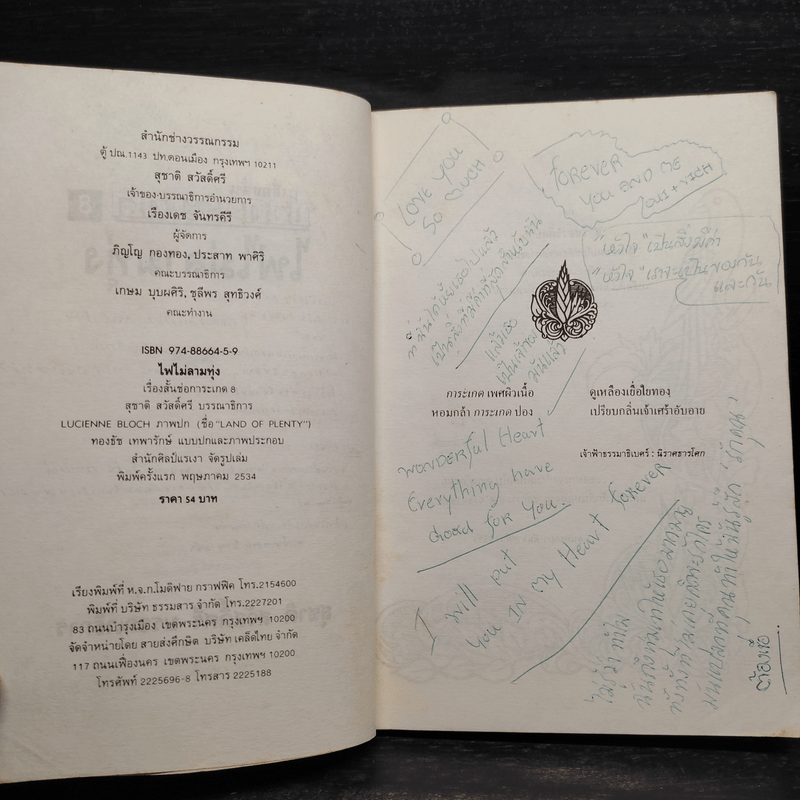 สำนักช่างวรรณกรรม
ตู้ ปณ.1143 ปท.ดอนเมือง กรุงเทพฯ 10211
สุชาติ สวัสดิ์ศรี
เจ้าของ-บรรณาธิการอำนวยการ
เรืองเดช จันทรคีรี
ผู้จัดการ
ภิญโญ กองทอง, ประสาท พาศิริ
คณะบรรณาธิการ
เกษม บุบผศิริ, ชุลีพร สุทธิวงศ์
คณะทำงาน
ISBN 974-88664-5-9
ไฟไม่ลามทุ่ง
เรื่องสั้นช่อการะเกด 8
สุชาติ สวัสดิ์ศรี บรรณาธิการ
LUCIENNE BLOCH ภาพปก (ชื่อ "LAND OF PLENTY")
ทองธัช เทพารักษ์ แบบปกและภาพประกอบ
สำนักศิลป์แรเงา จัดรูปเล่ม
พิมพ์ครั้งแรก พฤษภาคม 2534
ราคา 54 บาท
เรียงพิมพ์ที่ ห.จ.ก.โมดิฟาย กราฟฟิค โทร.2154600
พิมพ์ที่ บริษัท ธรรมสาร จำกัด โทร.2227201
83 ถนนบำรุงเมือง เขตพระนคร กรุงเทพฯ 10200
จัดจำหน่ายโดย สายส่งศึกษิต บริษัท เคล็ดไทย จำกัด
117 ถนนเฟื่องนคร เขตพระนคร กรุงเทพฯ 10200
โทรศัพท์ 2225696-8 โทรสาร 2225188
LOVE YOU
SO MUCH
FOREVER
YOU AND ME
"หัวใจ" เป็นสิ่งมีค่า
"หัวใจ" เราจะเป็นของกัน
และกัน
แล้วเธอ
มันแล้ว
การะเกด เพศผิวเนื้อ ดูเหลืองเยื่อใยทอง
หอมกล้า การะเกด ปอง เปรียบกลิ่นเจ้าเศร้าอับอาย
เจ้าฟ้าธรรมาธิเบศร์ : นิราศธารโศก
WONDERFUL HEART
Everything have
Good for you.
I will put
you IN MY Heart FOREVER
ไม่รู้ว่าทำไม
ฉันถึง